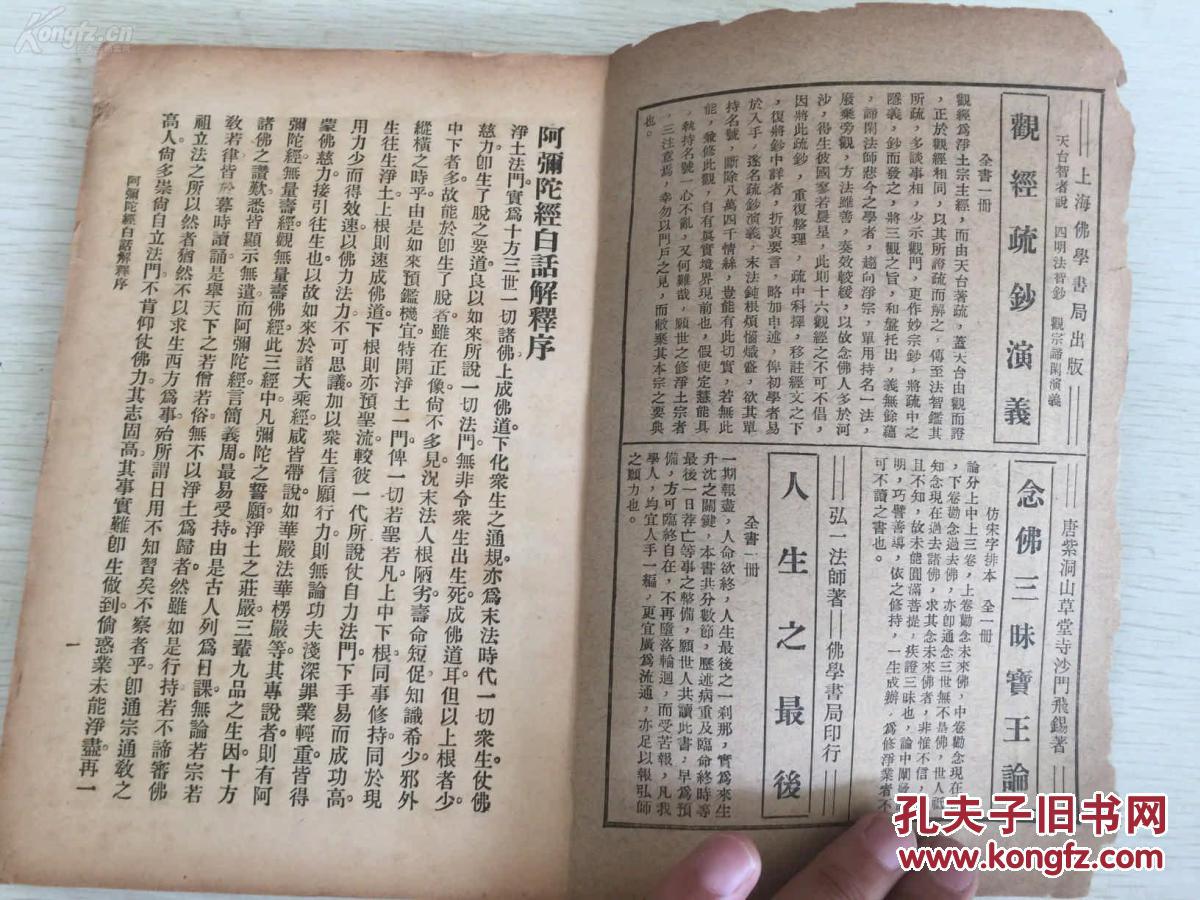 上海佛學書局出版
觀經疏鈔演義
天台智者說 四明法智鈔 觀宗諦閑演義
全書一冊
觀經為淨土宗主經,而由天台著疏,蓋天台由觀而證
,正於觀經相同,以其所證疏而解之,傳至法智鑑其
所疏,多談事相,少示觀門,更作妙宗鈔,將疏中之
隱義,鈔而發之,將三觀之旨,和盤托出,義無餘蘊
,諦閑法師悲今之學者,趨向淨宗,單用持名一法,
廢棄旁觀,方法雖善,奏效較緩,以故念佛人多於河
沙,得生彼國寥若晨星,此則十六觀經之不可不倡,
因將此疏鈔,重復整理,疏中科擇,移註經文之下
,復將鈔中詳者,折衷要言,略加申述,俾初學者易
於入手,遂名疏鈔演義,末法鈍根煩惱熾盛,欲其單
持名號,斷除八萬四千情絲,豈能有此切實,若無此
能,兼修此觀,自有真實境界現前也,假使定慧能具
,執持名號一心不亂,又何難哉,願世之修淨土宗者
,三注意焉,幸勿以門戶之見,而敝棄其本宗之要典
也。
唐紫洞山草堂寺沙門飛錫著
念佛三昧寶王論
仿宋字排本 全一冊
論分上中上三卷,上卷勸念未來佛,中卷勸念現在
,下卷勸念過去佛,亦卽通念三世無不是佛,世人祗
知念現在過去諸佛,求其念未來佛者,非惟不信,
且不知,故未能圓滿菩提,疾證三昧也,論中闡
明,巧譬善導,依之修持,一生成辦,為修淨業者不
可不讀之書也。
弘一法師著 佛學書局印行
人生之最後
全書一冊
一期報盡,人命欲終,人生最後之一刹那,實為來生
升沈之關鍵,本書共分數節,歷述病重及臨命終時等
最後一日荐亡等事之整備,願世人共讀此書,早為預
備,方可臨終自在,不再墮落輪迴,而受苦報,凡我
學人,均宜人手一編,更宜廣為流通,亦足以報弘師
之願力也。
阿彌陀經白話解釋序
淨土法門。實為十方三世一切諸佛上成佛道下化衆生之通規。亦為末法時代一切衆生仗佛
慈力卽生了脫之要道良以如來所說一切法門無非令衆生出生死成佛道耳但以上根者少
中下者多故能於卽生了脫者雖在正像尙不多見況末法人根陋劣壽命短促知識希少邪外
縱橫之時乎由是如來預鑑機宜特開淨土一門俾一切若聖若凡上中下根同事修持同於現
生往生淨土上根則速成佛道下根則亦預聖流較彼一代所說仗自力法門下手易而成功高。
用力少而得效速以佛力法力不可思議加以衆生信願行力則無論功夫淺深罪業輕重皆得
蒙佛慈力接引往生也以故如來於諸大乘經咸皆帶說如華嚴法華楞嚴等其專說者則有阿
彌陀經無量壽經觀無量壽佛經此三經中凡彌陀之誓願淨土之莊嚴三輩九品之生因十方
諸佛之讚歎悉皆顯示無遺而阿彌陀經言簡義周最易受持由是古人列為日課無論若宗若
敎若律皆於暮時讀誦是舉天下之若僧若俗無不以淨土為歸者然雖如是行持若不諦審佛
祖立法之所以然者猶然不以求生西方為事殆所謂日用不知習矣不察者乎卽通宗通敎之
高人尙多崇尙自立法門不肯仰仗佛力其志固高其事實難卽生做到倘惑業未能淨盡再一
阿彌陀經白話解釋序
一
Kongfz.cn
孔夫子旧书网
www.kongfz.com